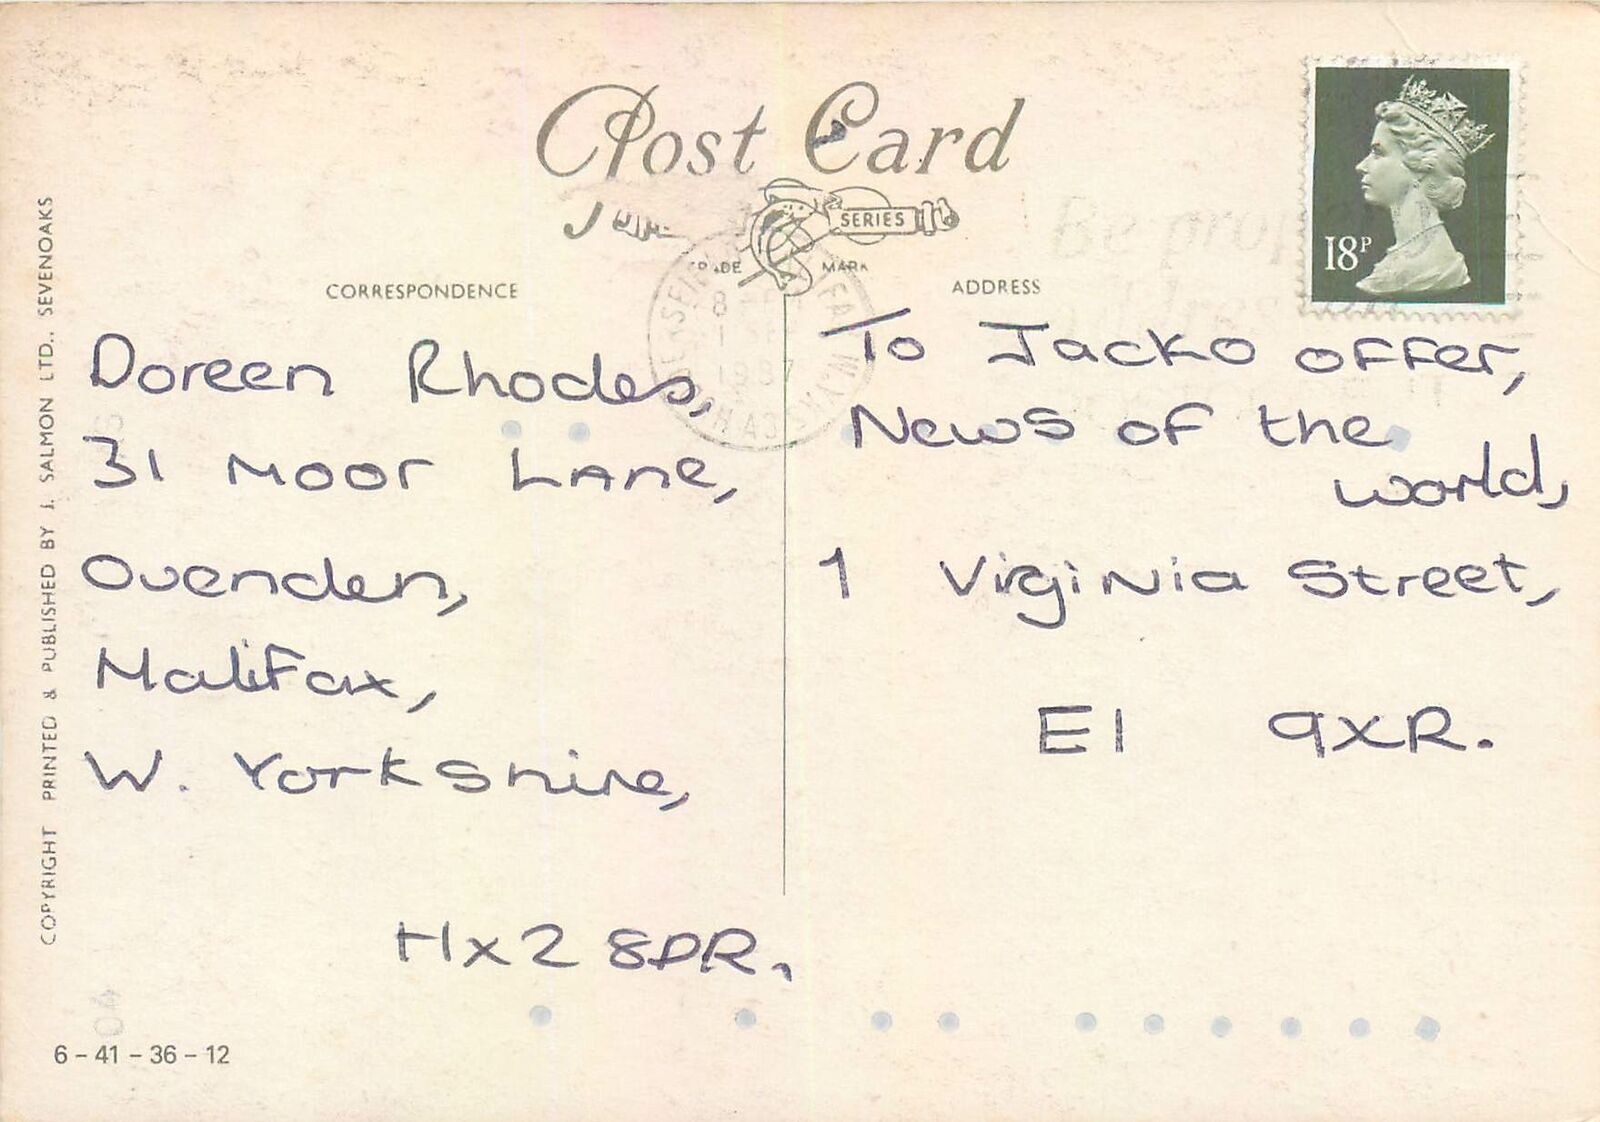 Post Card
SERIES
TRADE MARK
CORRESPONDENCE
ADDRESS
18P
Be prop
addres
1987
Doreen Rhodes,
31 Moor Lane,
Ovenden,
Halifax,
W. Yorkshire,
Hx2 8DR.
To Jacko offer,
News of the
world,
1 Virginia Street,
E1 9XR.
COPYRIGHT PRINTED & PUBLISHED BY J. SALMON LTD., SEVENOAKS
6 – 41 – 36 – 12